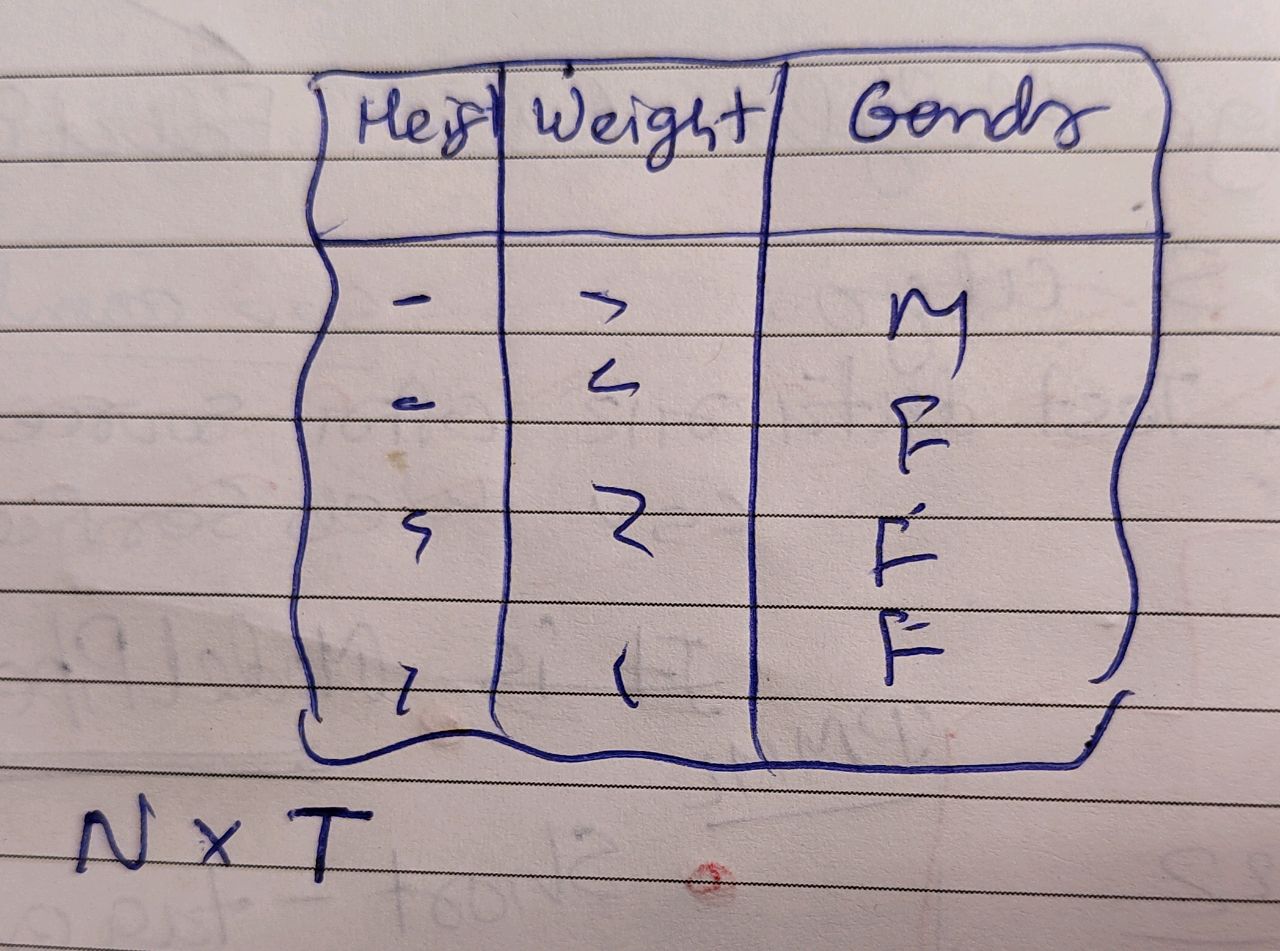 Heigt Weight Gender
- > M
- < F
5 2 F
7 ( F
N x T